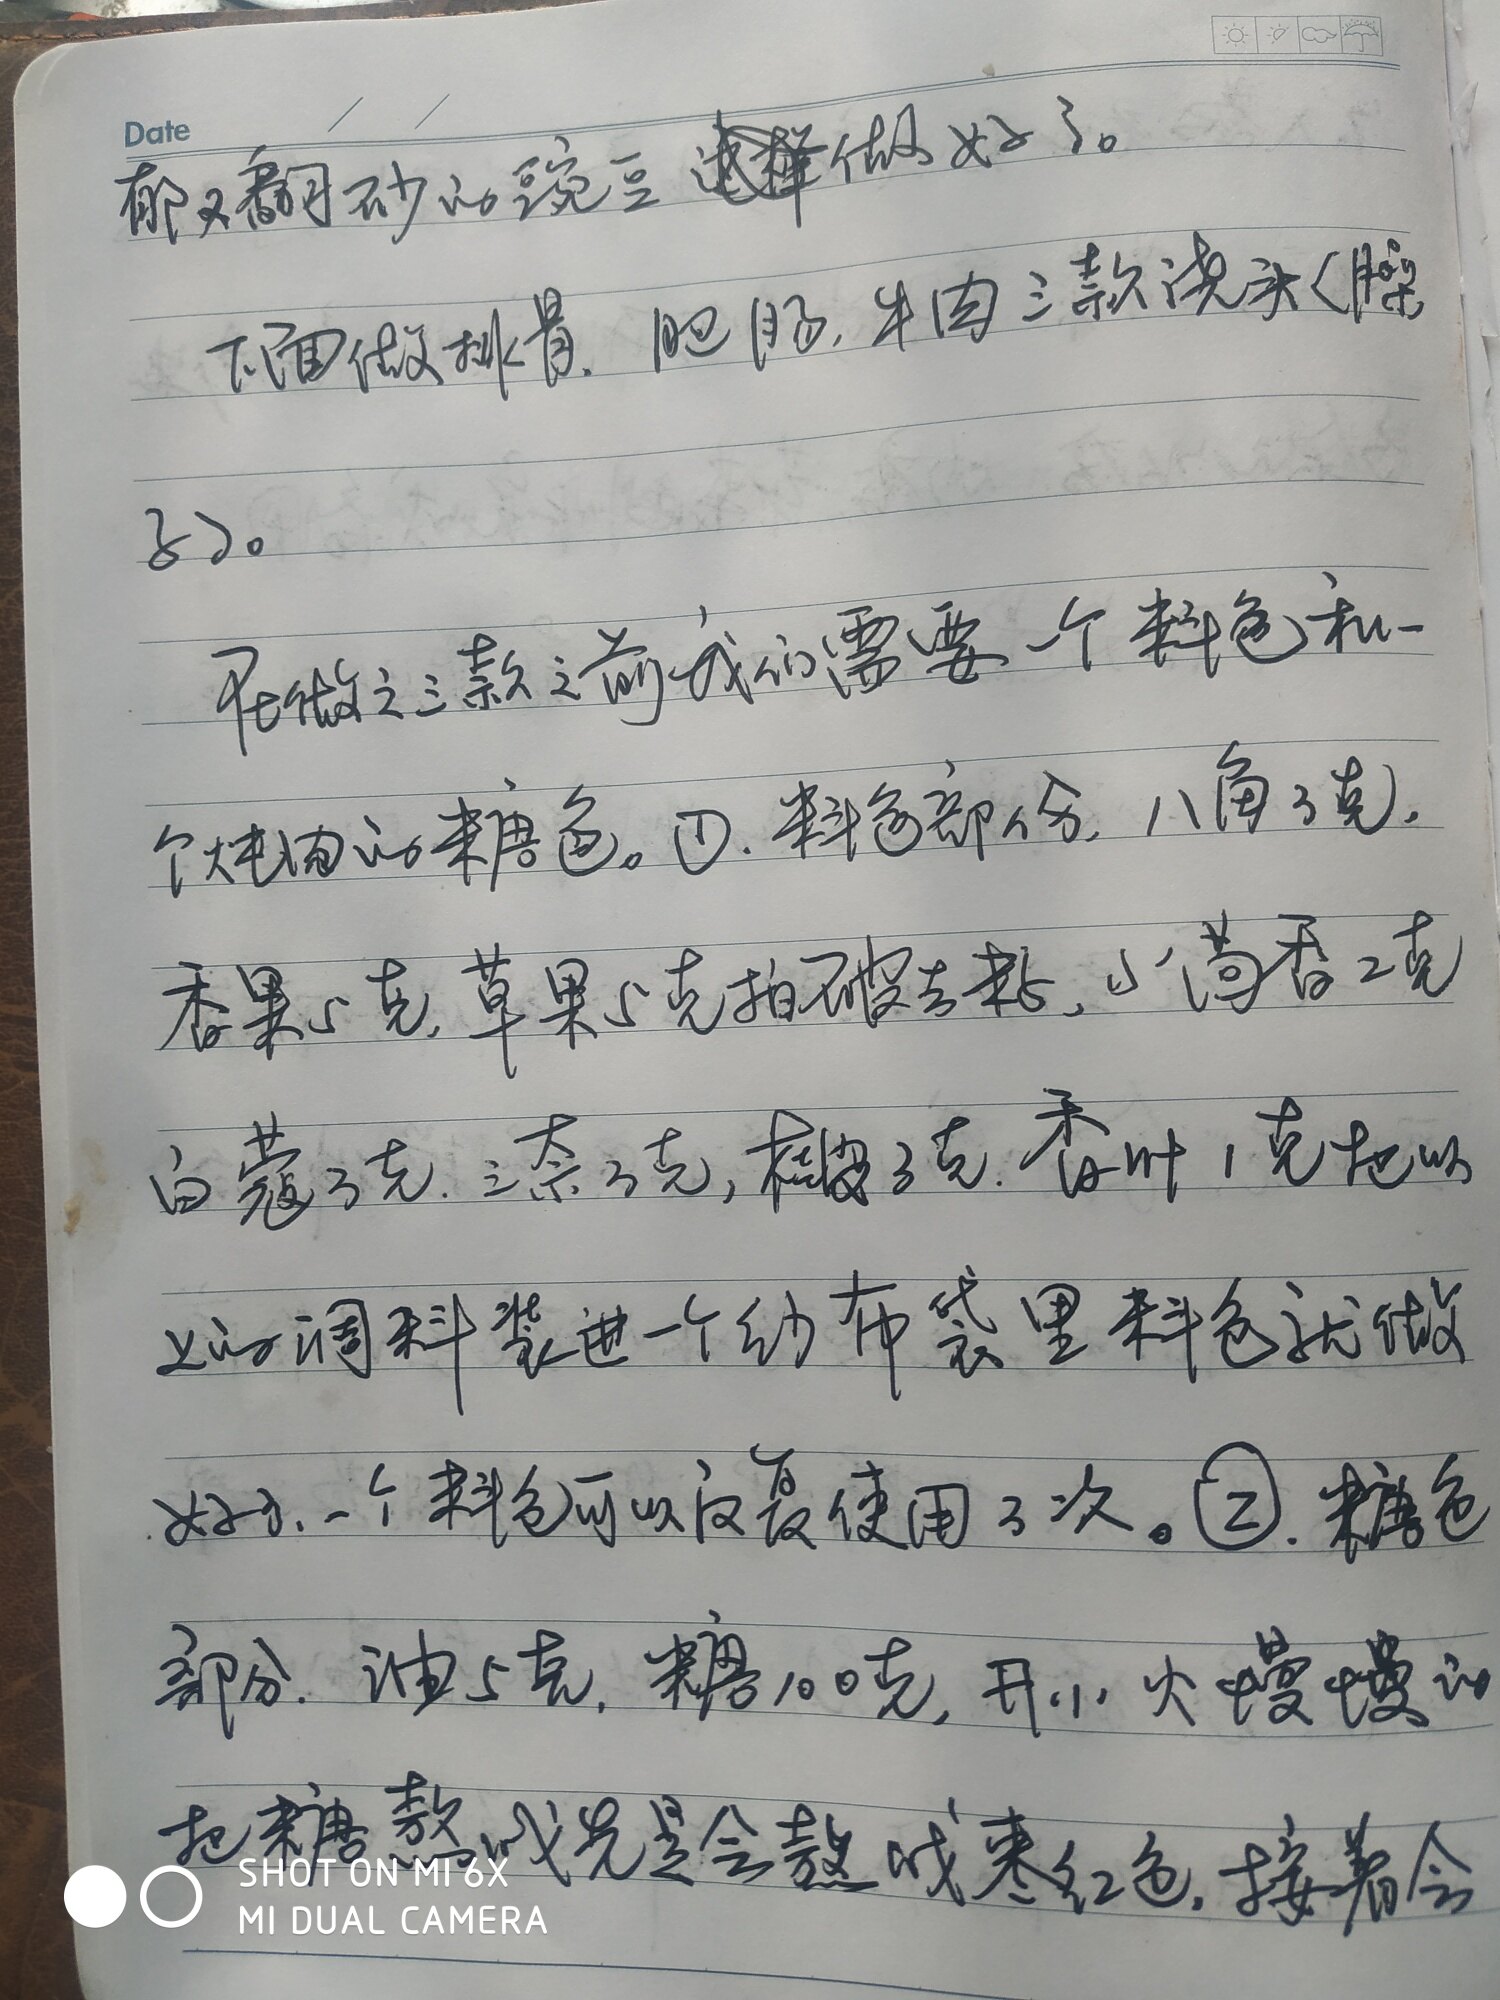 Date
郁又翻砂的豌豆 做好了。
下面做排骨. 肥肠, 牛肉三款浇头(臊
子)。
在做之三款之前我们需要一个料包和一
个炖肉的糖色。①. 料包部份, 八角3克,
香果5克, 草果5克拍破去籽, 小茴香2克
白蔻3克. 三奈3克, 桂皮3克. 香叶1克把以
上的调料装进一个纱布袋里料包就做
好了, 一个料包可以反复使用3次。②. 糖色
部分. 油5克, 糖100克, 开小火慢慢的
把糖熬 先是会熬成枣红色, 接着会
SHOT ON MI 6X
MI DUAL CAMERA